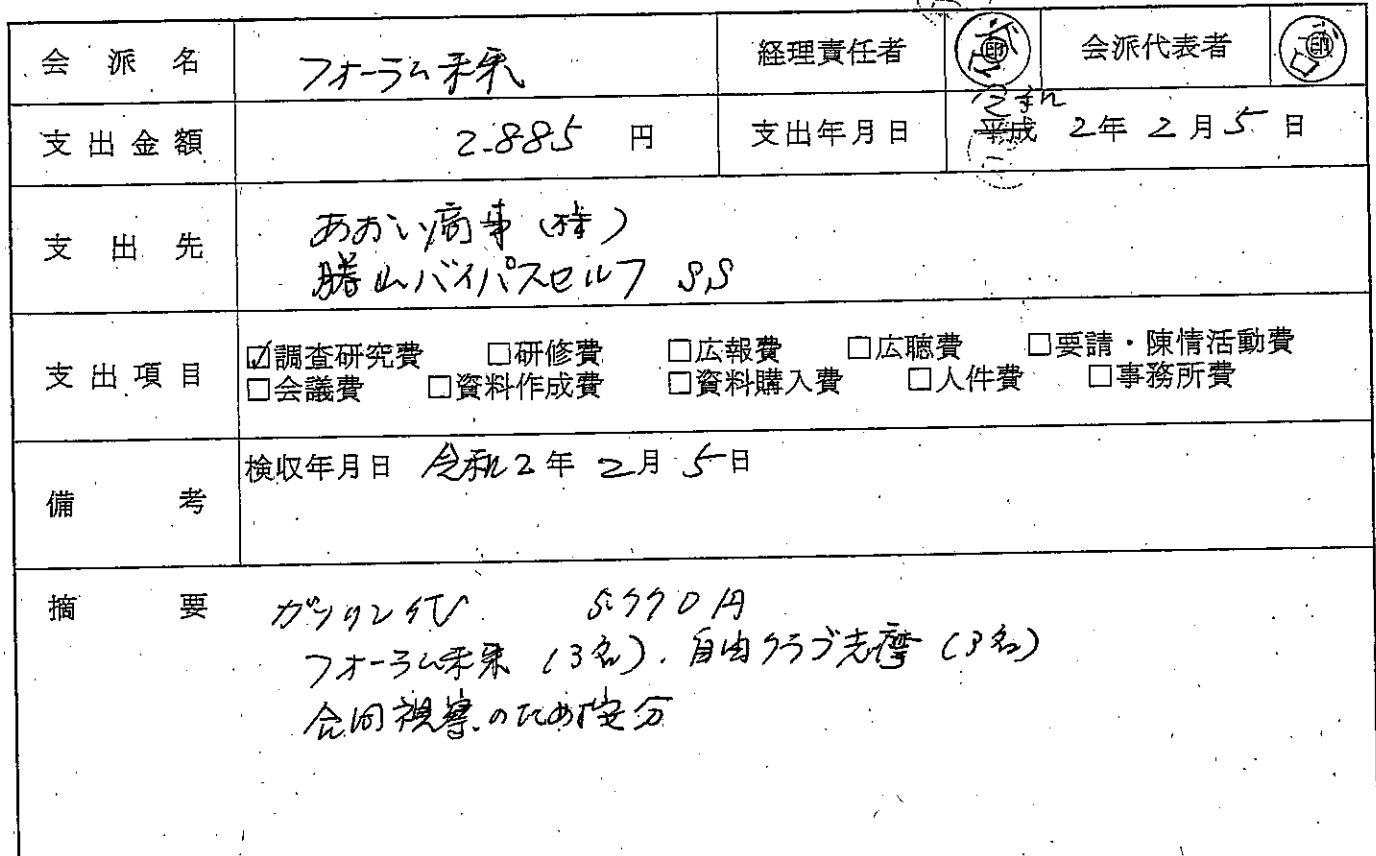 会派名 フォーラム未来 経理責任者 印 会派代表者 印
支出金額 2,885 円 支出年月日 平成 令和 2年 2月 5日
支出先 あおい商事(株)
勝山バイパスセルフ SS
支出項目 ☑調査研究費 □研修費 □広報費 □広聴費 □要請・陳情活動費
□会議費 □資料作成費 □資料購入費 □人件費 □事務所費
備考 検収年月日 令和2年 2月 5日
摘要 ガソリン代 5,770円
フォーラム未来(3名).自由クラブ志摩(3名)
合同視察のため按分